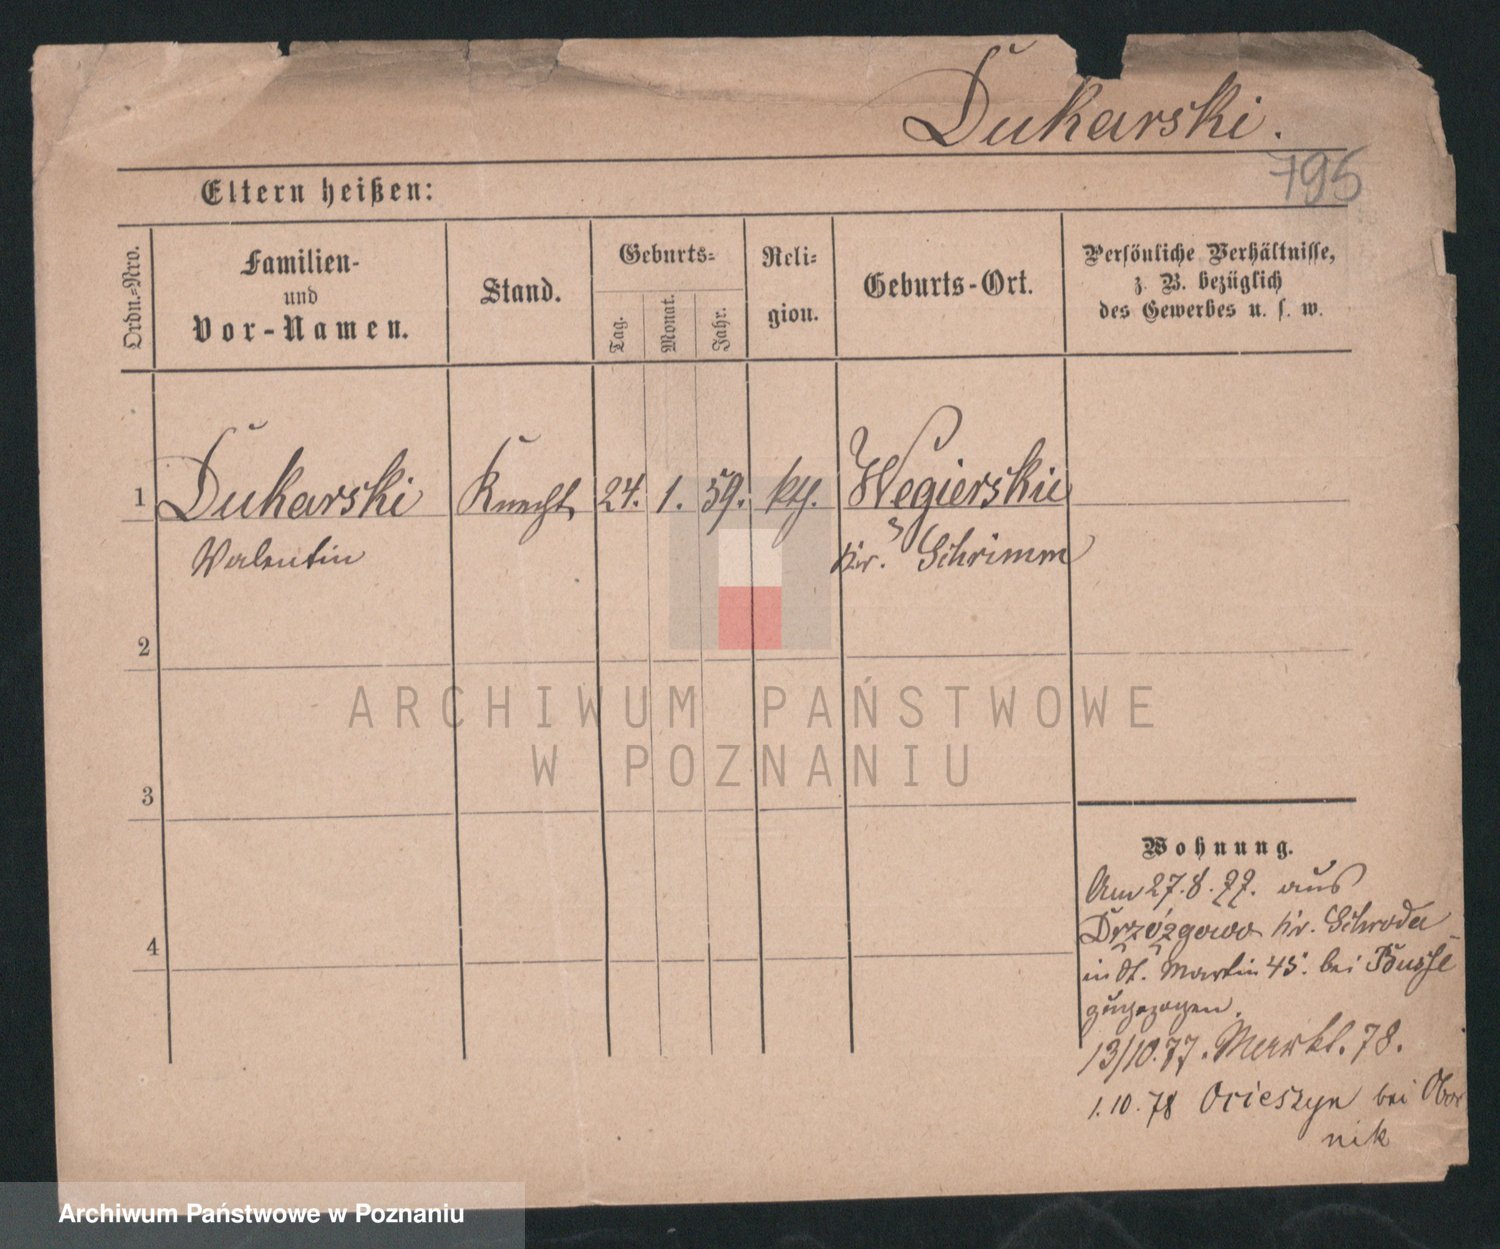 Dukarski.
795
Eltern heißen:
Ordn.-Nro.
Familien-
und
Vor-Namen.
Stand.
Geburts-
Tag.
Monat.
Jahr.
Reli-
gion.
Geburts-Ort.
Persönliche Verhältnisse,
z. B. bezüglich
des Gewerbes u. s. w.
1 Dukarski Knecht 24. 1. 59. kth. Wegierskie
Valentin Kr. Schrimm
2
3
4
Wohnung.
Am 27.8.77. aus
Drzązgowo Kr. Schroda
in St. Martin 45. bei Busse
zugezogen.
13/10.77. Markt. 78.
1.10.78 Ocieszyn bei Obor
nik
ARCHIWUM PAŃSTWOWE
W POZNANIU
Archiwum Państwowe w Poznaniu